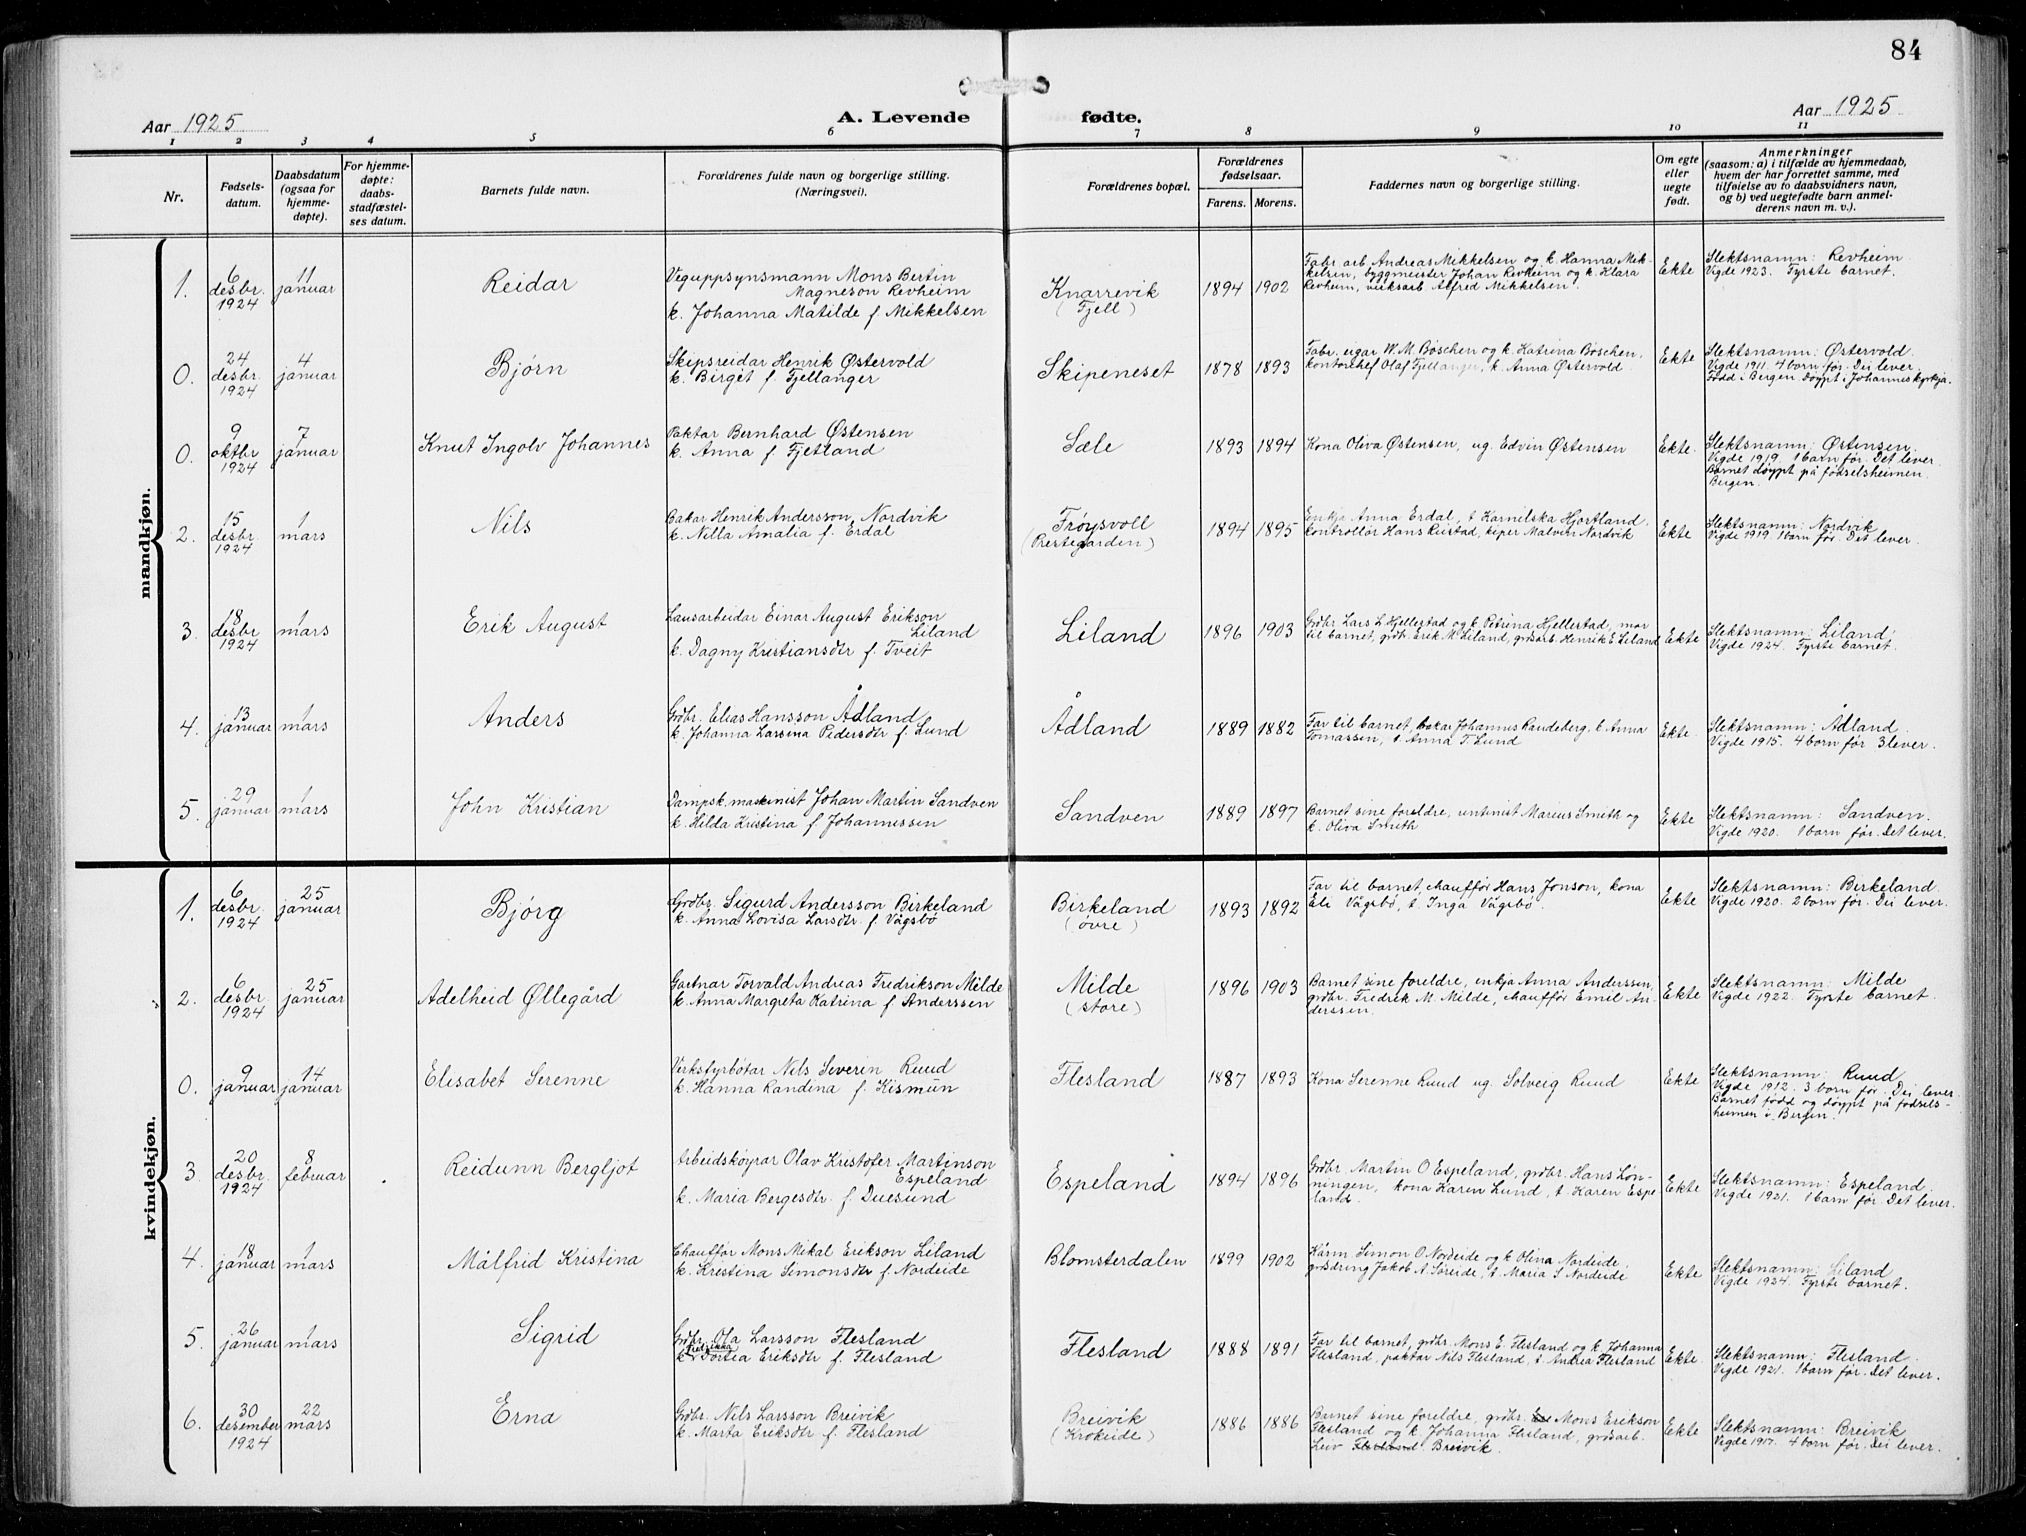 84
Aar 1925
A. Levende fødte.
Aar 1925
1 2 3 4 5 6 7 8 9 10 11
Nr.
Fødsels-
datum.
Daabsdatum
(ogsaa for
hjemme-
døpte).
For hjemme-
døpte:
daabs-
stadfæstel-
ses datum.
Barnets fulde navn.
Forældrenes fulde navn og borgerlige stilling.
(Næringsvei).
Forældrenes bopæl.
Forældrenes
fødselsaar.
Farens. Morens.
Faddernes navn og borgerlige stilling.
Om egte
eller
uegte
født.
Anmerkninger
(saasom: a) i tilfælde av hjemmedaab,
hvem der har forrettet samme, med
tilføielse av to daabsvidners navn,
og b) ved uegtefødte barn anmel-
derens navn m. v.).
mandkjøn.
1.
6
desbr.
1924
11
januar
Reidar
Veguppsynsmann Mons Bertin
Magneson Revheim
k. Johanna Matilde f. Mikkelsen
Knarrevik
(Fjell)
1894 1902
Fabr. arb. Andreas Mikkelsen og k. Hanna Mik-
kelsen, byggmeister Johan Revheim og k. Klara
Revheim, verksarb Alfred Mikkelsen.
Ekte
Slektsnamn: Revheim
Vigde 1923. Fyrste barnet.
0.
24
desbr.
1924
4
januar
Bjørn
Skipsreidar Henrik Østervold
k. Birget f. Fjellanger
Skipeneset
1878 1893
Fabr. eigar W. M. Bøschen og k. Katrina Bøschen,
kontorchef Olaf Fjellanger, k. Anna Østervold
Ekte
Slektsnamn: Østervold.
Vigde 1911. 4 born før. Dei lever.
Fødd i Bergen Døypt i Johanneskyrkja.
0.
9
oktbr
1924
7
januar
Knut Ingolv Johannes
Paktar Bernhard Østensen
k. Anna f. Fjetland
Sæle
1893 1894
Kona Oliva Østensen, ug. Edvin Østensen
Ekte.
Slektsnamn: Østensen.
Vigde 1919. 1 barn før. Det lever.
Barnet døypt på fødselsheimen.
Bergen.
2.
15
desbr
1924
1
mars
Nils
Bakar Henrik Andersson Nordvik
k. Nilla Amalia f. Erdal
Frøysvoll
(Prestegarden)
1894 1895
Enkje Anna Erdal, t Karnilska Hjortland.
kontrollør Hans Rustad, kiper Malvin Nordvik
Ekte
Slektsnamn: Nordvik
Vigde 1919. 1 born før. Det lever.
3.
18
desbr
1924
1
mars
Erik August
Lausarbeidar Einar August Erikson
Liland
k. Dagny Kristiansdtr f. Tveit
Liland
1896 1903
Grdbr Lars L Hjellestad og k Petrina Hjellestad, mor
til barnet, grdbr. Erik M. Liland, grdsarb Henrik E Liland
Ekte
Slektsnamn: Liland.
Vigde 1924. Fyrste barnet.
4.
13
januar
1
mars
Anders
Grdbr. Elias Hansson Ådland
k. Johanna Larsina Pedersdtr f. Lund
Ådland
1889 1882
Far til barnet, bakar Johannes Randeberg, t. Anna
Tomassen, t. Anna T. Lund
Ekte.
Slektsnamn: Ådland.
Vigde 1915. 4 born før 3 lever.
5.
29
januar
1
mars
John Kristian
Dampsk. maskinist Johan Martin Sandven
k. Hilda Kristina f. Johannessen
Sandven
1889 1897
Barnet sine foreldre, Marius Smith og
k. Oliva Smith
Ekte
Slektsnamn: Sandven.
Vigde 1920. 1 born før. Det lever.
kvindekjøn.
1.
6
desbr.
1924
25
januar
Bjørg
Grdbr. Sigurd Andersson Birkeland
k. Anna Lovisa Larsdtr f. Vågsbø
Birkeland
(øvre)
1893 1892
Far til barnet, chauffør Hans Jonson, kona
Eli Vågsbø, t. Inga Vågsbø.
Ekte
Slektsnamn: Birkeland.
Vigde 1920. 2 born før. Dei lever.
2.
6
desbr.
1924
25
januar
Adelheid Øllegård
Gartnar Torvald Andreas Fredrikson Milde
k. Anna Margreta Katrina f. Anderssen
Milde
(store)
1896 1903
Barnet sine foreldre, enkja Anna Anderssen,
grdbr. Fredrik M. Milde, chauffør Emil An-
derssen.
Ekte
Slektsnamn: Milde
Vigde 1922. Fyrste barnet.
0.
9
januar
14
januar
Elisabet Serenne
Verksfyrbøtar Nils Severin Ruud
k. Hanna Randina f. Rismun
Flesland
1887 1893
Kona Serenne Ruud ug. Solveig Ruud
Ekte
Slektsnamn: Ruud
Vigde 1912. 3 born før. Dei lever.
Barnet fødd og døypt på fødsels-
heimen i Bergen.
3.
20
desbr.
1924
8
februar
Reidunn Bergljot
Arbeidskøyrar Olav Kristofer Martinson
Espeland
k. Maria Bergesdtr. f. Duesund
Espeland
1894 1896
Grdbr. Martin O Espeland, grdbr. Hans Løn-
ningen, kona Karen Lund, t. Karen Espe-
land.
Ekte
Slektsnamn: Espeland.
Vigde 1921. 1 barn før. Det lever.
4.
18
januar
1
mars
Målfrid Kristina
Chauffør Mons Mikal Erikson Liland
k. Kristina Simonsdtr f. Nordeide
Blomsterdalen
1899 1902
Kårm Simon O. Nordeide og k Olina Nordeide,
grdsdreng Jakob A Søreide, t. Maria S Nordeide
Ekte
Slektsnamn: Liland
Vigde 1924. Fyrste barnet.
5.
26
januar
1
mars
Sigrid
Grdbr. Ola Larsson Flesland
Fredrikka
k. Dortea Eriksdtr f. Flesland
Flesland
1888 1891
Far til barnet, grdbr. Mons E. Flesland og k Johanna
Flesland, paktar Nils Flesland, t. Andrea Flesland
Ekte.
Slektsnamn: Flesland.
Vigde 1921. 1 barn før. Det lever.
6.
30
desember
1924
22
mars
Erna
Grdbr. Nils Larsson Breivik
k. Marta Eriksdtr f. Flesland
Breivik
(Krokeide)
1886 1886
Barnet sine foreldre, grdbr. Mons Erikson
Flesland og k. Johanna Flesland, grdsarb.
Leiv Flesland Breivik.
Ekte
Slektsnamn: Breivik
Vigde 1917. 4 born før. Dei lever.